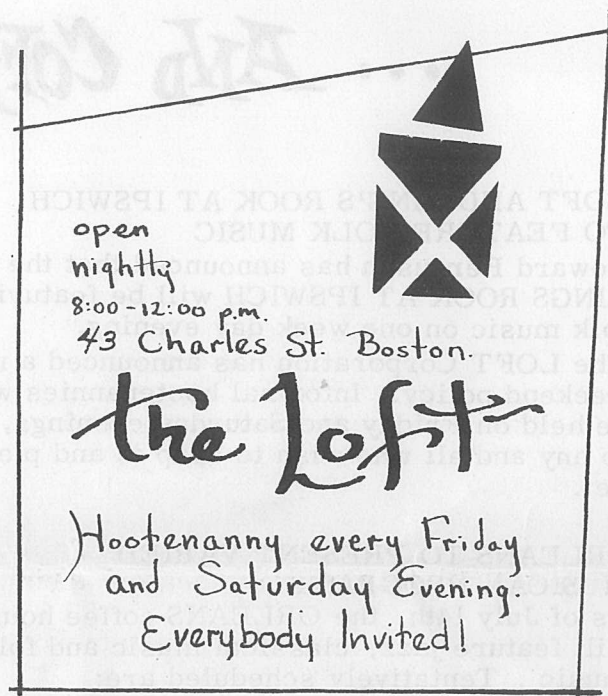 open
nightly
8:00 12:00 p.m.
43 Charles St. Boston.
the Loft
Hootenanny every Friday
and Saturday Evening.
Everybody Invited!